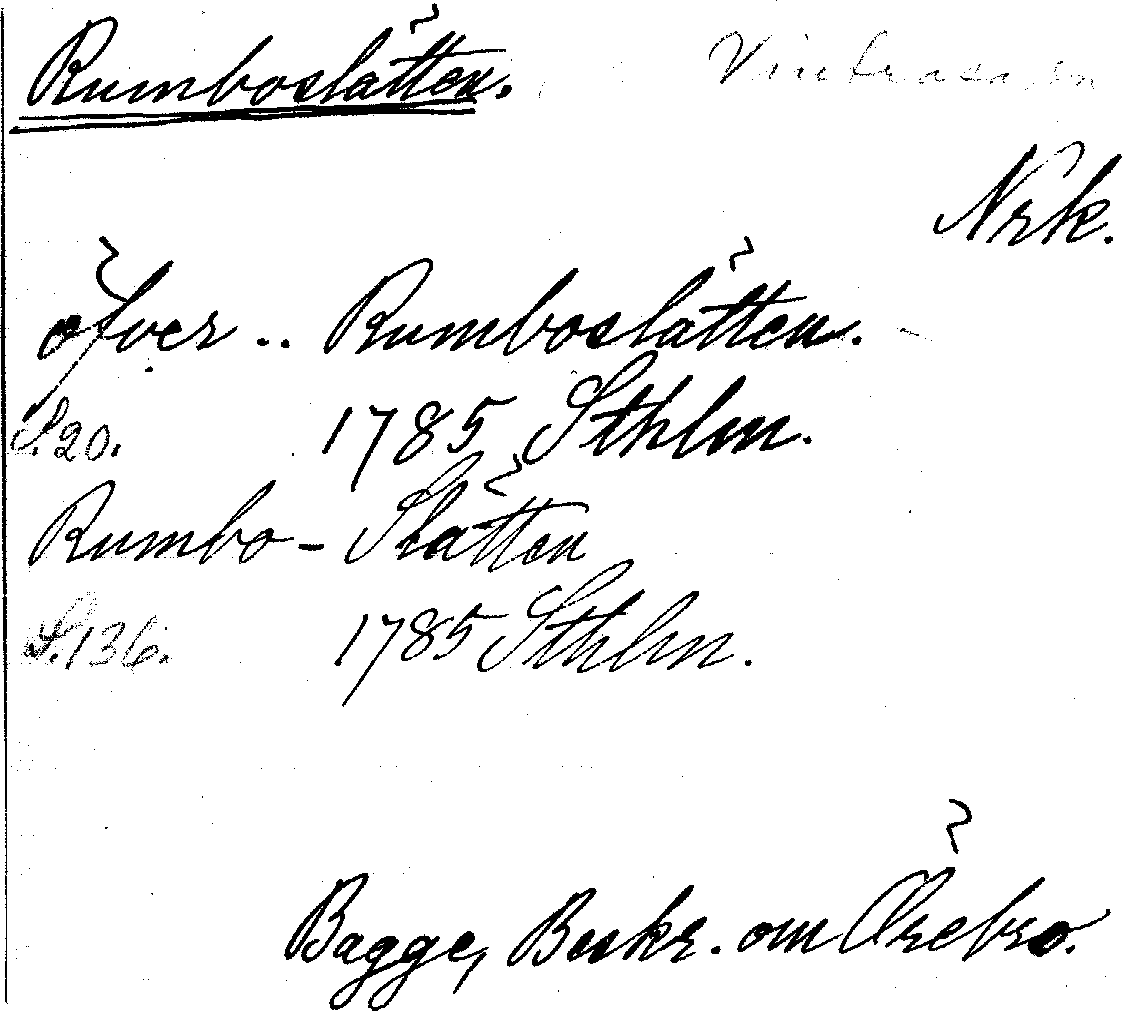 Rumboslätten. Vintrosa sn
Nrk.
öfver .. Rumboslätten.
S. 20. 1785 Sthlm.
Rumbo - Slätten
S. 136. 1785 Sthlm.
Bagge, Beskr. om Örebro.